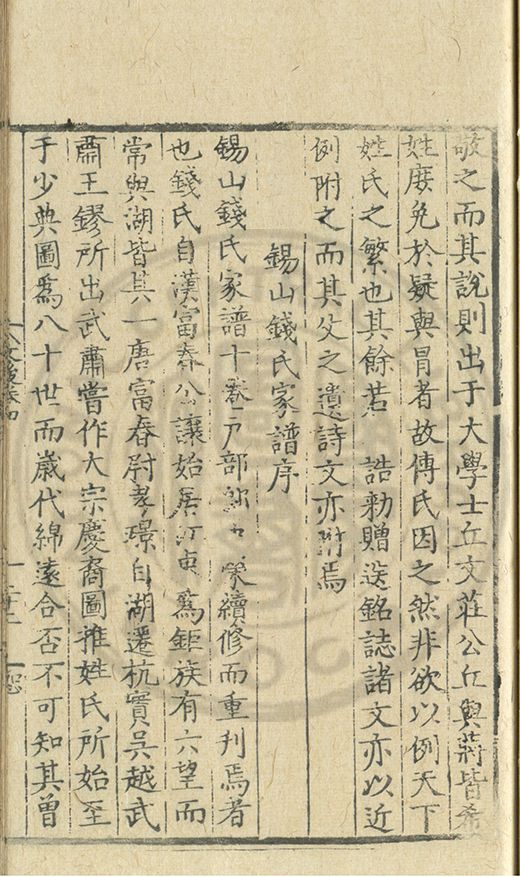 敬之而其說則出于大學士丘文莊公丘與蔣皆希
姓庶免於疑與冐者故傳氏因之然非欲以例天下
姓氏之繁也其餘若　誥勑贈送銘誌諸文亦以近
例附之而其父之遺詩文亦附焉
錫山錢氏家譜序
錫山錢氏家譜十卷戶部　續修而重刋焉者
也錢氏自漢富春公讓始居江東爲鉅族有六望而
常與湖皆其一唐富春尉孝璟自湖遷杭實吳越武
肅王鏐所出武肅嘗作大宗慶裔圖推姓氏所始至
于少典圖爲八十世而歲代綿遠合否不可知其曾